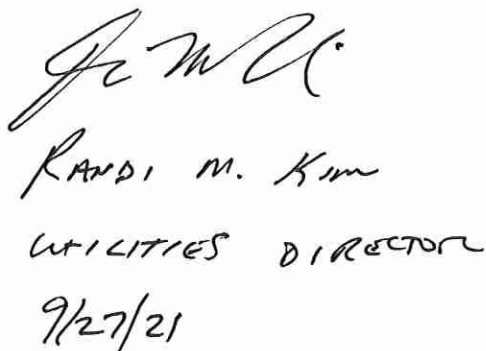 RANDI M. Kim
UTILITIES DIRECTOR
9/27/21